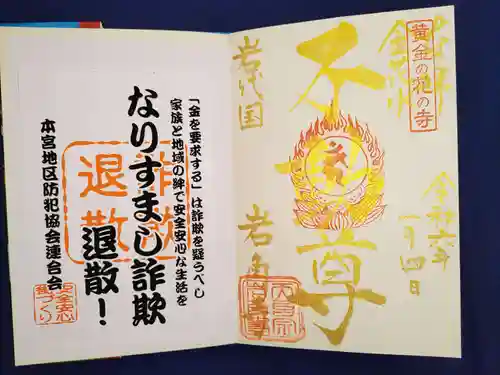 黄金の花の寺
岩代国
不動尊
岩角山
令和六年
一月四日
「金を要求する」は詐欺を疑うべし
家族と地域の絆で安全安心な生活を
なりすまし詐欺
退散！
本宮地区防犯協会連合会
詐欺
退散
安全安心
街づくり